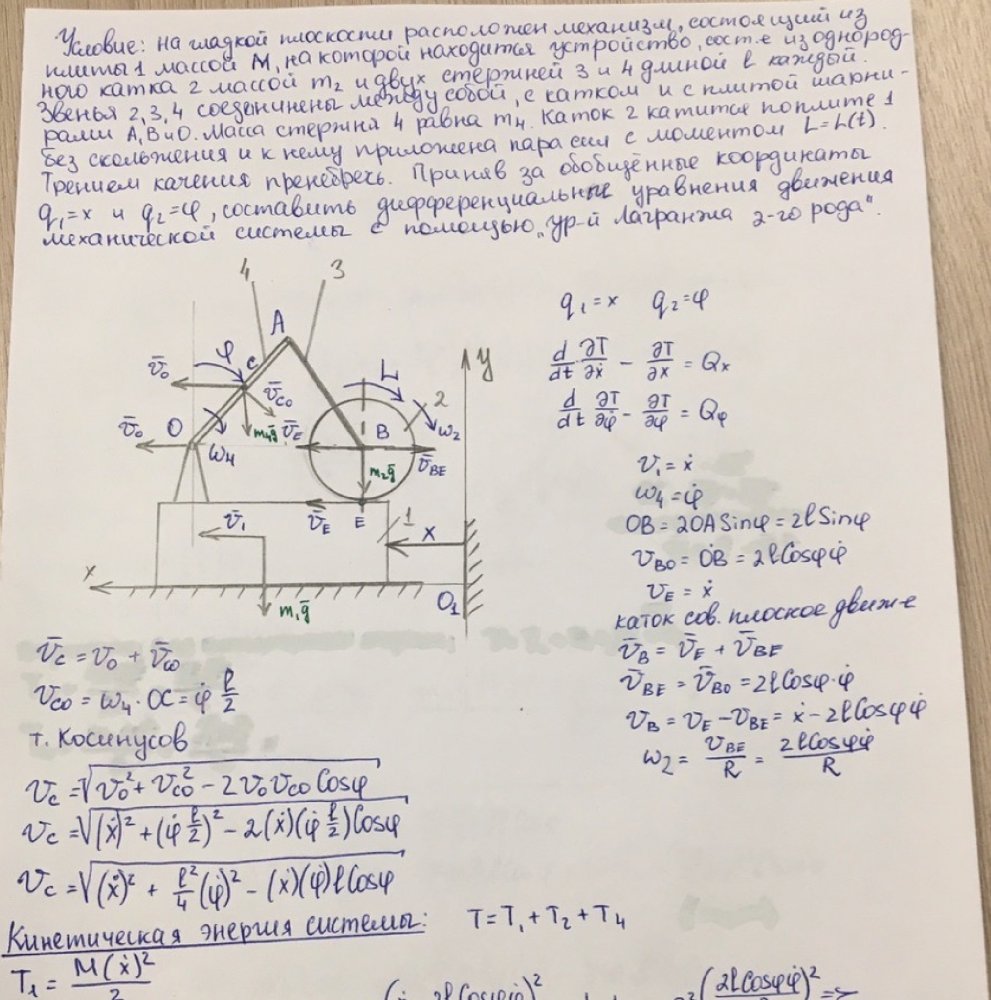 Условие: на гладкой плоскости расположен механизм, состоящий из
плиты 1 массой M, на которой находится устройство, сост-е из однород-
ного катка 2 массой m₂ и двух стержней 3 и 4 длиной l каждый.
Звенья 2, 3, 4 соединены между собой, с катком и с плитой шарни-
рами A, B и O. Масса стержня 4 равна m₄. Каток 2 катится по плите 1
без скольжения и к нему приложена пара сил с моментом L=L(t).
Трением качения пренебречь. Приняв за обобщённые координаты
q₁=x и q₂=φ, составить дифференциальные уравнения движения
механической системы с помощью „ур-й Лагранжа 2-го рода".
4
3
A
φ
C
v̄₀
v̄_C0
L
2
ω₂
y
v̄₀
O
ω₄
m₄ḡ
v̄_E
B
m₂ḡ
v̄_BE
v̄₁
v̄_E
E
1
x
x
m₁ḡ
O₁
q₁=x q₂=φ
d/dt ∂T/∂ẋ - ∂T/∂x = Qₓ
d/dt ∂T/∂φ̇ - ∂T/∂φ = Q_φ
v₁=ẋ
ω₄=φ̇
OB=2OA Sinφ=2l Sinφ
v_B0=ȮB=2l Cosφ φ̇
v_E=ẋ
каток сов. плоское движ-е
v̄_B=v̄_E+v̄_BE
v̄_BE=v̄_B0=2l Cosφ·φ̇
v_B=v_E-v_BE=ẋ-2l Cosφ φ̇
ω₂=v_BE/R=2l Cosφ φ̇/R
v̄_C=v̄₀+v̄_C0
v_C0=ω₄·OC=φ̇ l/2
т. Косинусов
v_C=√(v₀²+v_C0²-2v₀v_C0 Cosφ)
v_C=√((ẋ)²+(φ̇ l/2)²-2(ẋ)(φ̇ l/2)Cosφ)
v_C=√((ẋ)²+l²/4(φ̇)²-(ẋ)(φ̇)l Cosφ)
Кинетическая энергия системы: T=T₁+T₂+T₄
T₁=M(ẋ)²/2